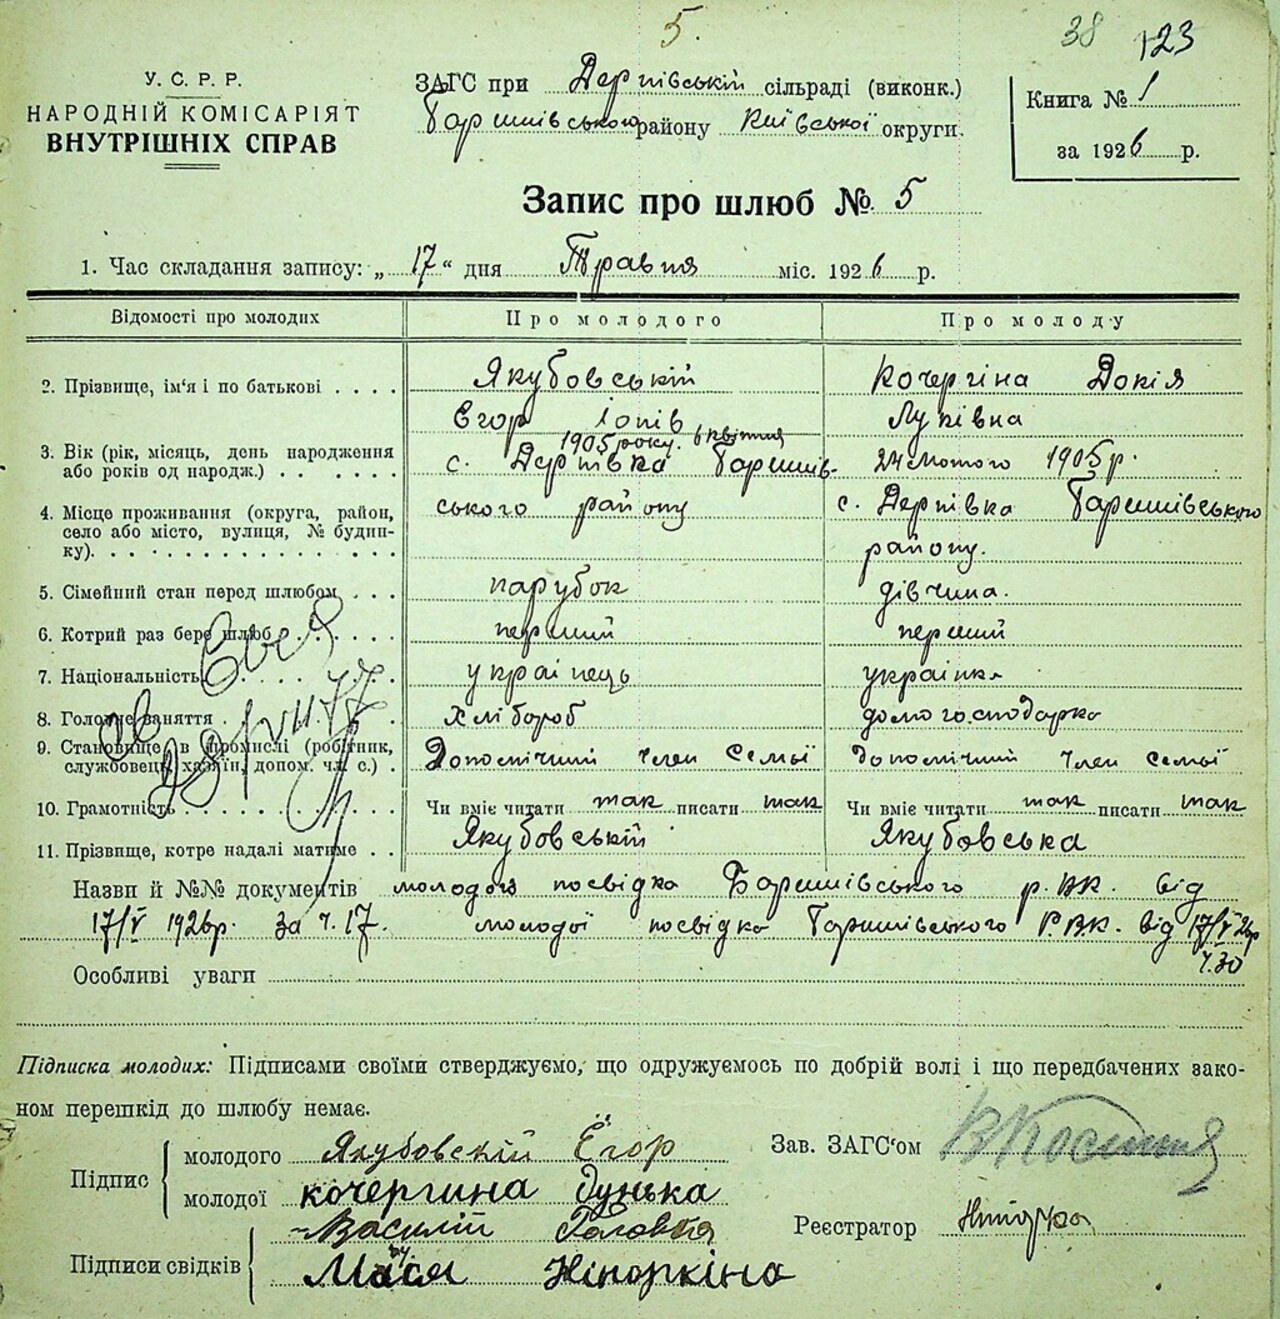 5.
38
123
У. С. Р. Р.
НАРОДНІЙ КОМІСАРІЯТ
ВНУТРІШНІХ СПРАВ
ЗАГС при Дернівській сільраді (виконк.)
Баришівського району Київської округи.
Книга № 1
за 1926 р.
Запис про шлюб № 5
1. Час складання запису: „ 17 “ дня Травня міс. 1926 р.
Відомості про молодих
Про молодого
Про молоду
2. Прізвище, ім'я і по батькові . . . .
Якубовській
Кочергіна Докія
Єгор Іонів
Луківна
1905 року. 6 квітня
3. Вік (рік, місяць, день народження
або років од народж.) . . . . . .
с. Дернівка Баришів-
24 лютого 1905 р.
4. Місце проживання (округа, район,
село або місто, вулиця, № будин-
ку). . . . . . . . . . . . . . .
ського району
с. Дернівка Баришівського
району.
5. Сімейний стан перед шлюбом . . .
парубок
дівчина.
6. Котрий раз бере шлюб . . . . . .
перший
перший
7. Національність . . . . . . . .
українець
українка
8. Головне заняття . . . . . . . .
хлібороб
домогосподарка
9. Становище в промислі (робітник,
службовець, хазяїн, допом. чл. с.) .
Допомічний член семьї
допомічний член семьї
10. Грамотність . . . . . . . . . .
Чи вміє читати так писати так
Чи вміє читати так писати так
11. Прізвище, котре надалі матиме . .
Якубовській
Якубовська
Назви й №№ документів молодого посвідка Баришівського р.ВК. від
17/V 1926р. за ч. 17. молодої посвідка Баришівського Р.ВК. від 17/V 26р
ч. 30
Особливі уваги
Підписка молодих: Підписами своїми стверджуємо, що одружуємось по добрій волі і що передбачених зако-
ном перешкід до шлюбу немає.
Підпис
молодого Якубовскій Ёгор
молодої кочергина Дунька
Підписи свідків
Василій Головня
Зав. ЗАГС'ом
Реєстратор